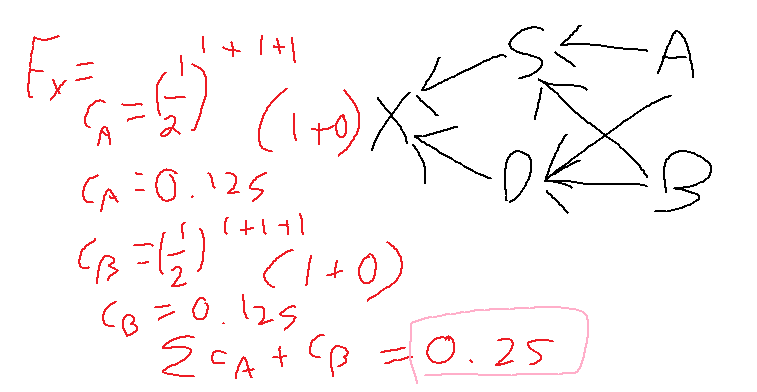 F_X =
C_A = (1/2)^{1+1+1} (1+0)
C_A = 0.125
C_B = (1/2)^{1+1+1} (1+0)
C_B = 0.125
Σ C_A + C_B = 0.25
S A
X
D B